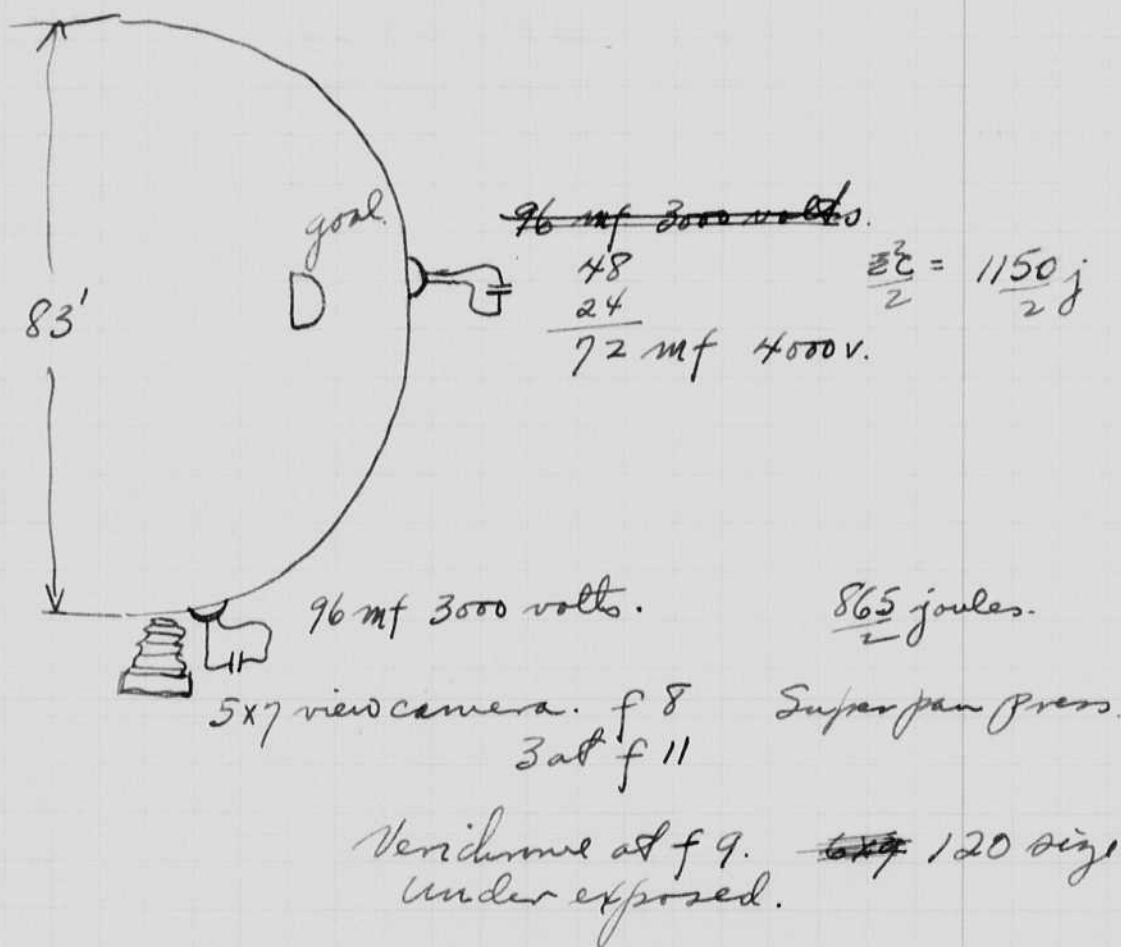 goal.
96 mf 3000 volts.
48
24
72 mf 4000 v.
E²C/2 = 1150/2 j
83'
96 mf 3000 volts.
865/2 joules.
5x7 view camera. f 8 Super pan press.
3 at f 11
Verichrome at f 9. 6x9 120 size
under exposed.